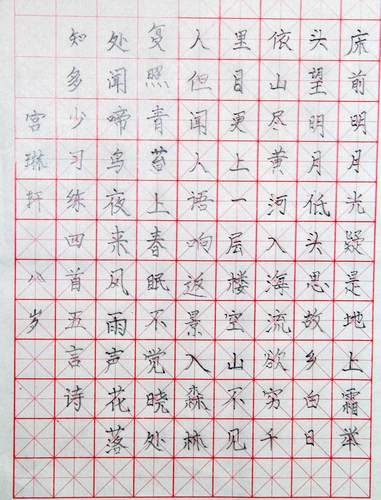 床前明月光疑是地上霜举
头望明月低头思故乡白日
依山尽黄河入海流欲穷千
里目更上一层楼空山不见
人但闻人语响返景入森林
复照青苔上春眠不觉晓处
处闻啼鸟夜来风雨声花落
知多少习练四首五言诗
宫琳轩 八岁